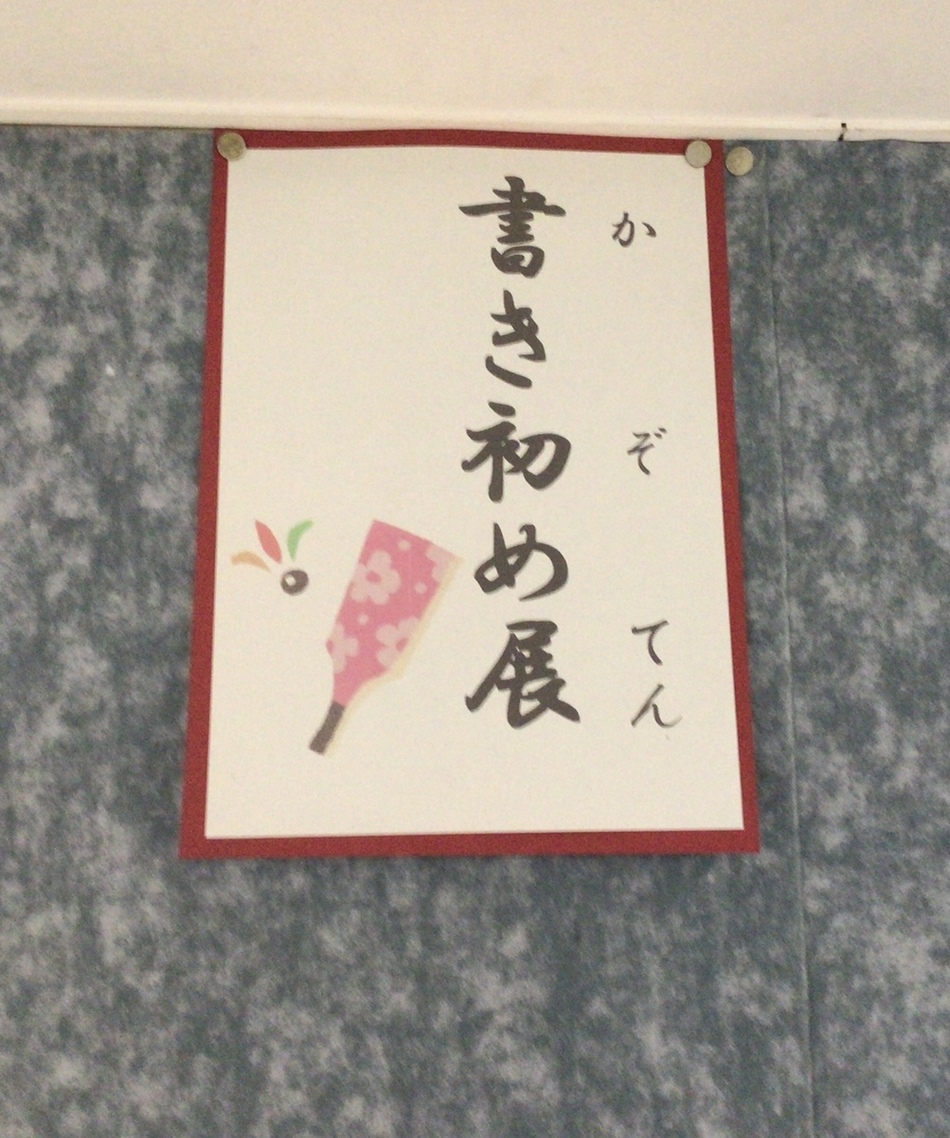 か ぞ てん
書き初め展